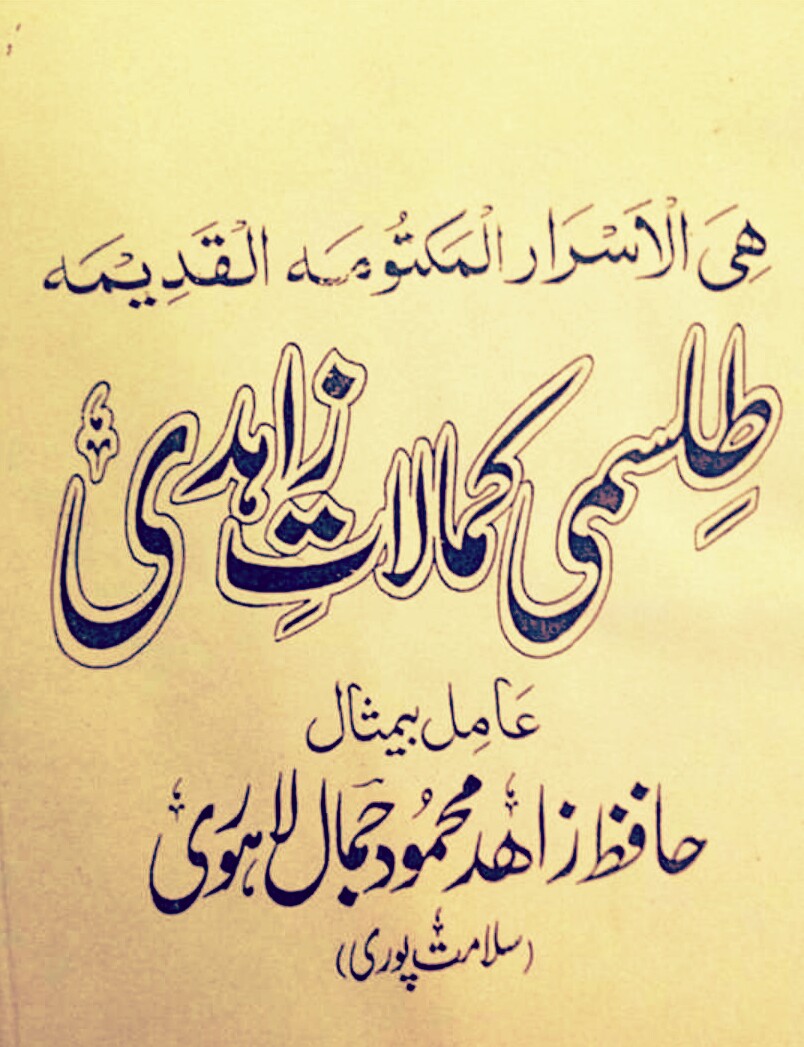 هِيَ الْاَسْرَار الْمَكتُومَه الْقَدِيْمَه
طِلِسمی کمالاتِ زاہدی
عَامِل بیمثال
حافظ زاھد محمُود جمَال لاہوری
(سلامت پوری)